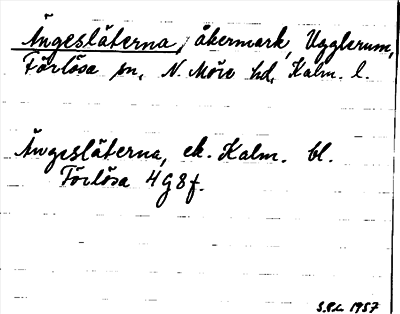 Ängesläterna, åkermark, Ugglerum,
Förlösa sn, N. Möre hd, Kalm. l.
Ängesläterna, ek. Kalm. bl.
Förlösa 4G8f.
1957